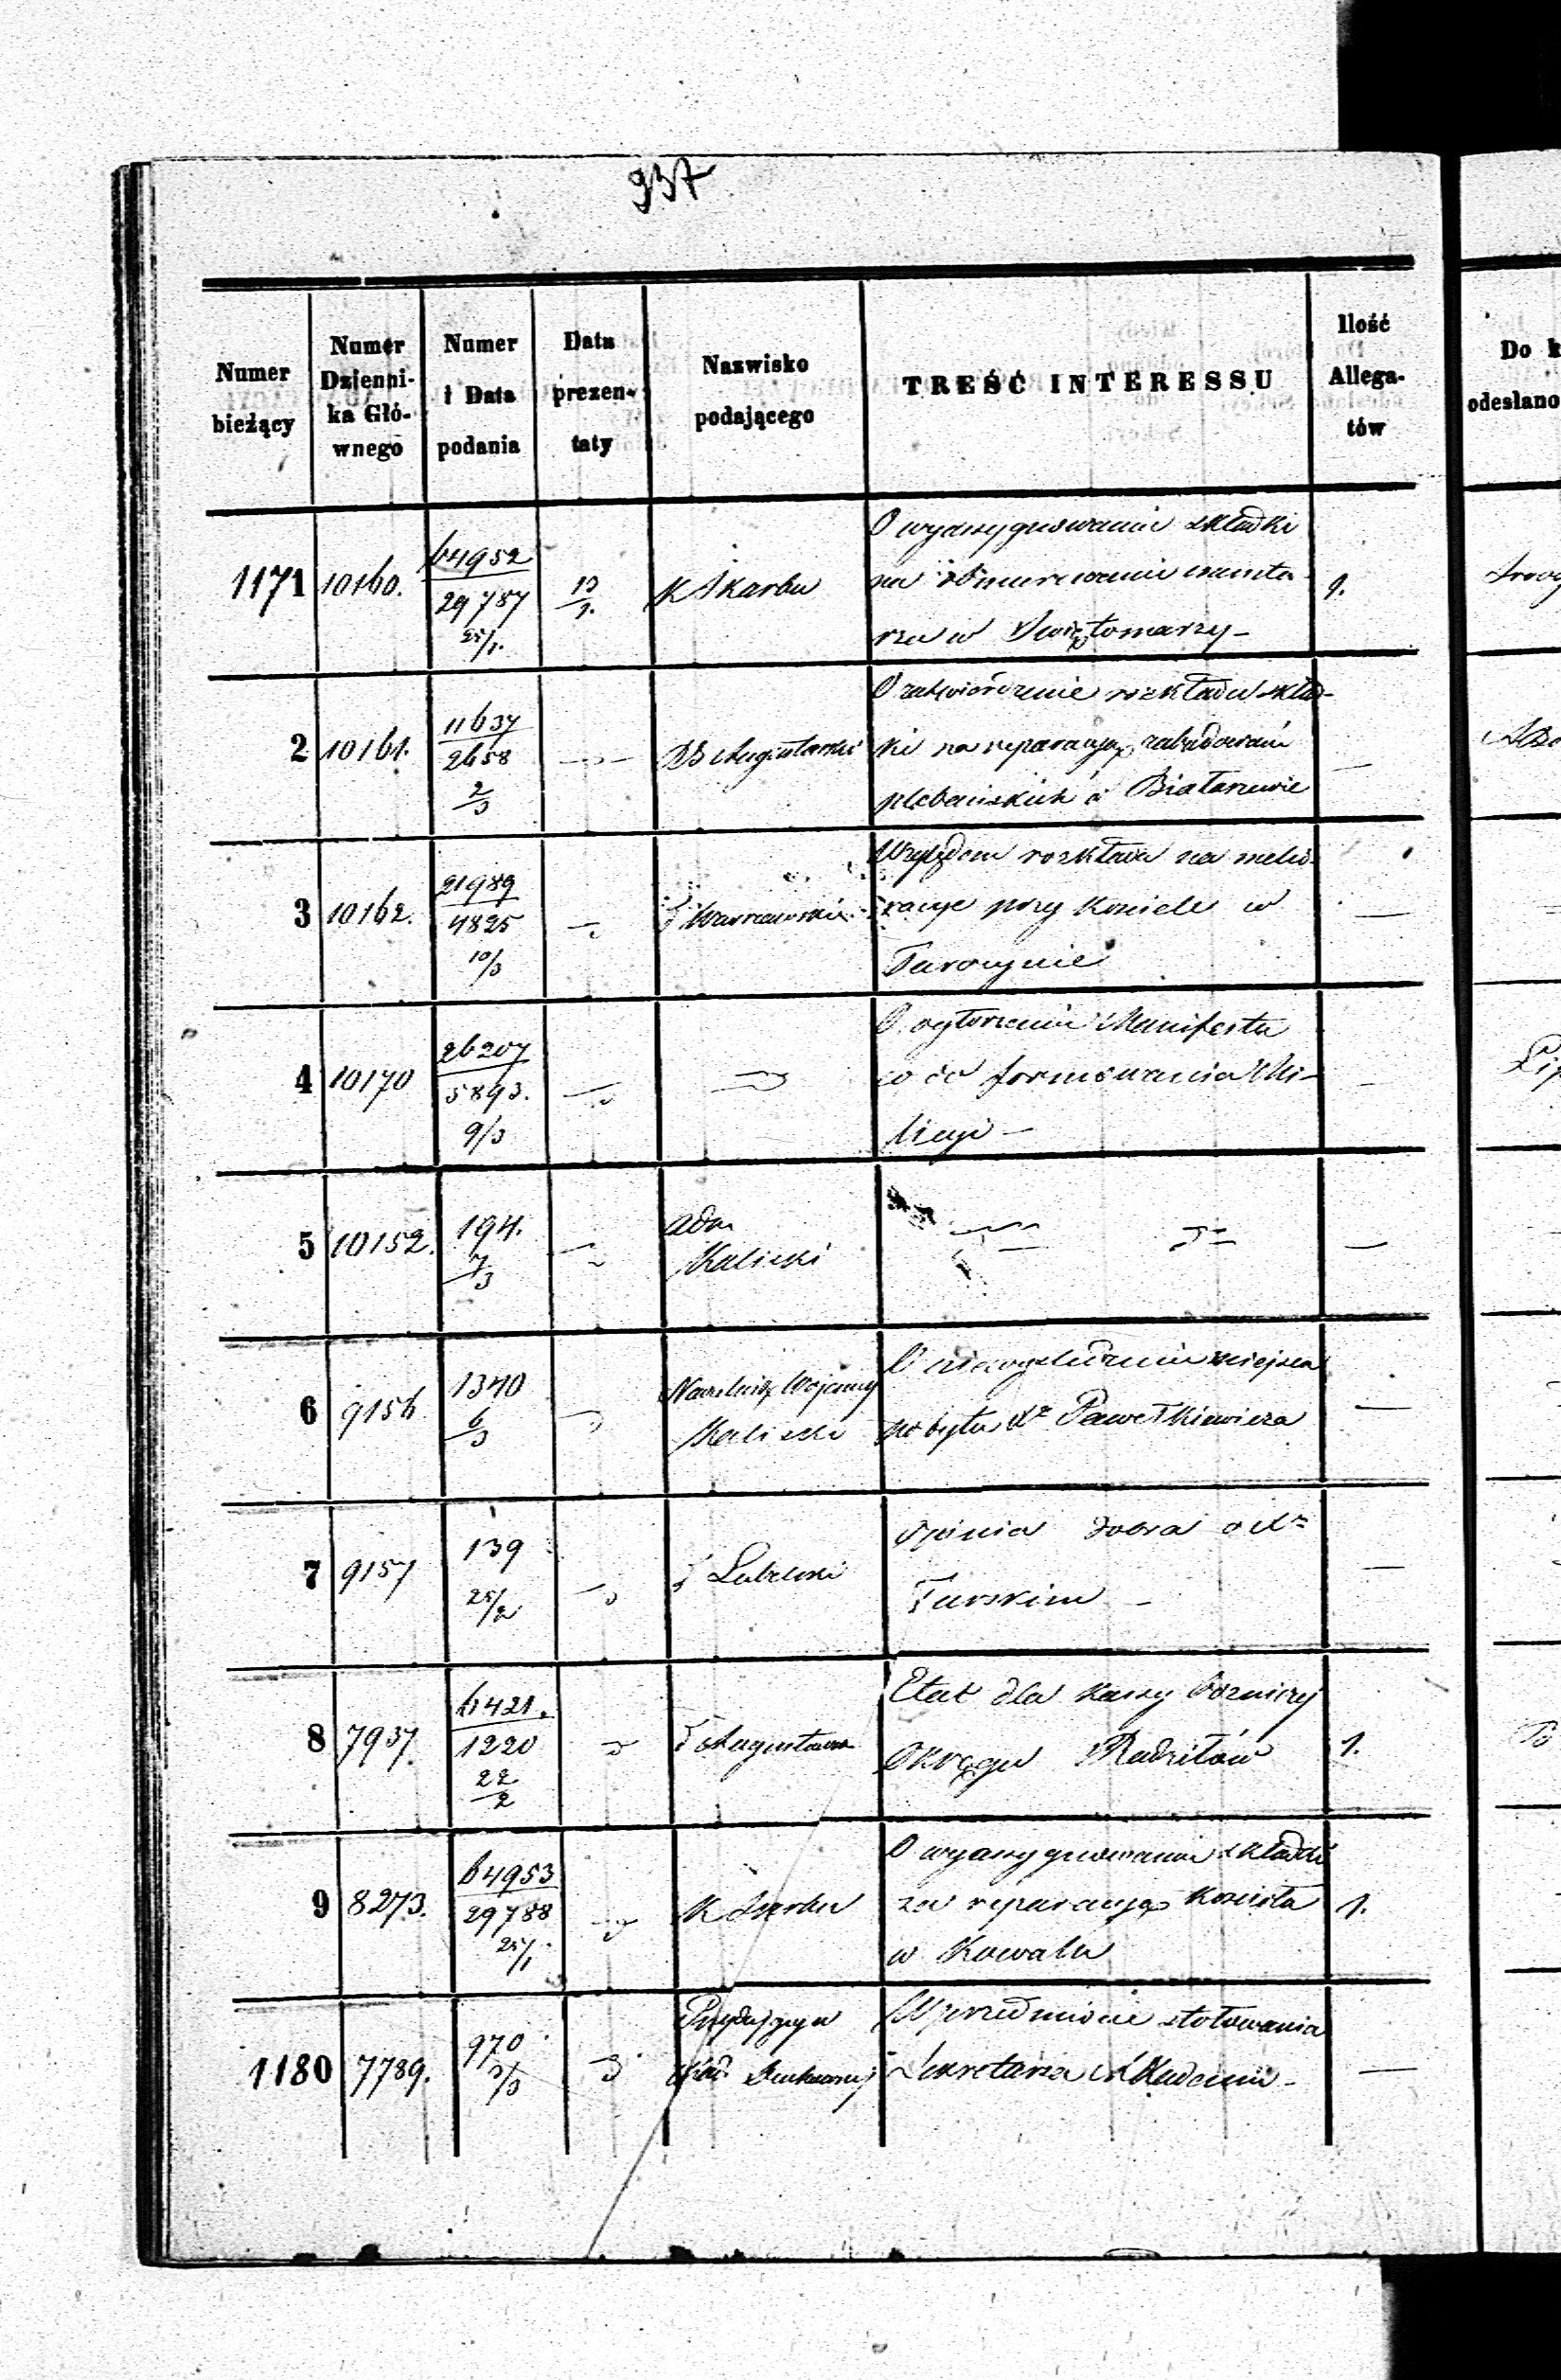 937
Numer bieżący | Numer Dzienni-ka Głó-wnego | Numer i Data podania | Data prezen-taty | Nazwisko podającego | TREŚĆ INTERESSU | Ilość Allega-tów | Do k odesłano
1171 | 10160. | 64952 / 29787 25/1. | 13/3. | K Skarbu | O wyassygnowanie składki
na obmurowanie cmenta-
rza w Swiętomarzy - | 1.
2 | 10161. | 11637 / 2658 2/3 | RG Augustowski | O zatwierdzenie rozkładu skład-
ki na reparacyą zabudowań
plebańskich w Białaszewie | —
3 | 10162. | 21989 / 4825 10/3 | Warszawski | Względem rozkładu na melio-
racye przy Kościele w
Tarczynie | —
4 | 10170 | 26207 / 5893. 9/3 | O ogłoszeniu Manifestu
co do formowania Mi-
licyi - | —
5 | 10152. | 194. 7/3 | Kaliski | —
6 | 9156 | 1340 6/3 | Naczelnik Wojenny
Kaliski | O niewyśledzeniu miejsca
pobytu Xa Pawełkiewicza | —
7 | 9157 | 139 25/2 | Lubelski | Opinia dobra o Xu
Turskim - | —
8 | 7937. | 6421. / 1220 22/2 | Augustowski | Etat dla kassy Bożniczej
Okręgu Radziłów | 1.
9 | 8273. | 64953 / 29788 25/1 | K Skarbu | O wyassygnowanie składki
za reparacyą Kościoła
w Kowalu | 1.
1180 | 7789. | 970 3/3 | Akad. Duchownej | W przedmiocie stołowania
Sekretarza Akademii - | —